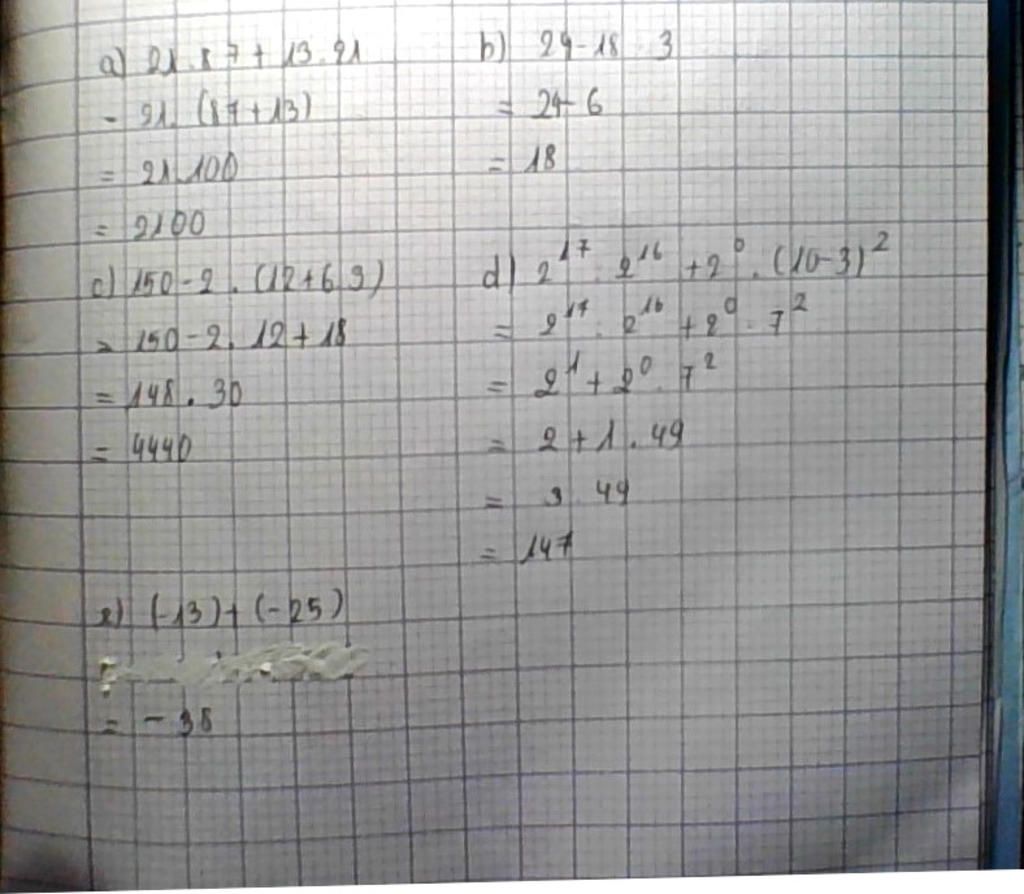 a) 21.87+13.21
= 21.(87+13)
= 21.100
= 2100
b) 24-18:3
= 24-6
= 18
c) 150-2.(12+6.3)
= 150-2.12+18
= 148.30
= 4440
d) 2¹⁷:2¹⁶+2⁰.(10-3)²
= 2¹⁷:2¹⁶+2⁰.7²
= 2¹+2⁰.7²
= 2+1.49
= 3.49
= 147
e) (-13)+(-25)
= -38